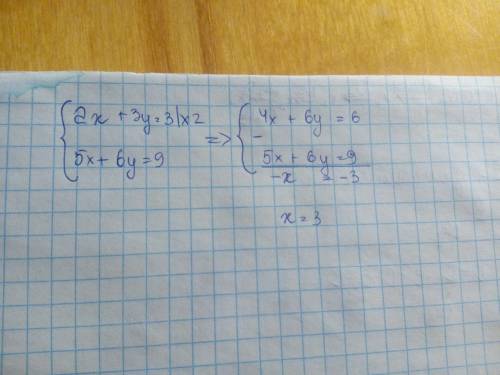 2x + 3y = 3 | x2
5x + 6y = 9
=>
4x + 6y = 6
-
5x + 6y = 9
-x = -3
x = 3